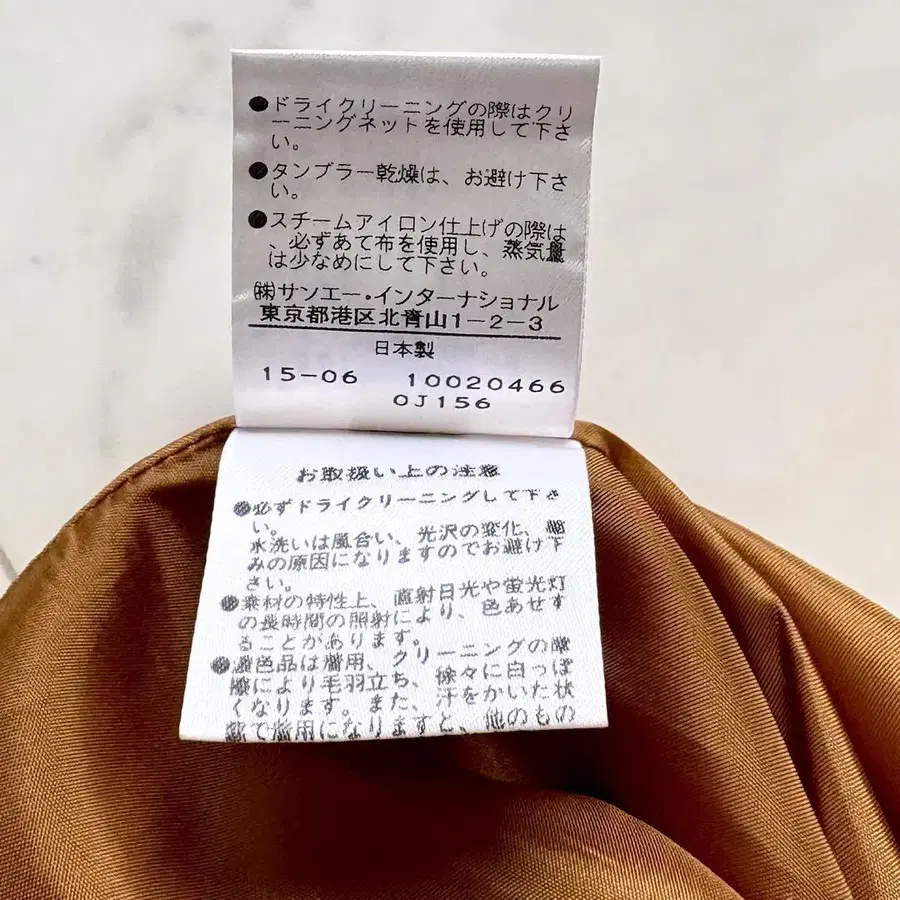 ●ドライクリーニングの際はクリ
ーニングネットを使用して下さ
い。
●タンブラー乾燥は、お避け下さ
い。
●スチームアイロン仕上げの際は
、必ずあて布を使用し、蒸気量
は少なめにして下さい。
㈱サンエー・インターナショナル
東京都港区北青山1-2-3
日本製
15-06 10020466
0J156
お取扱い上の注意
●必ずドライクリーニングして下さ
い。
水洗いは風合い、光沢の変化、
みの原因になりますのでお避け下
さい。
●素材の特性上、直射日光や蛍光灯
の長時間の照射により、色あせす
ることがあります。
●濃色品は着用、クリーニングの
により毛羽立ち、徐々に白っぽ
くなります。また、汗をかいた状
態で着用になりますと、他のもの